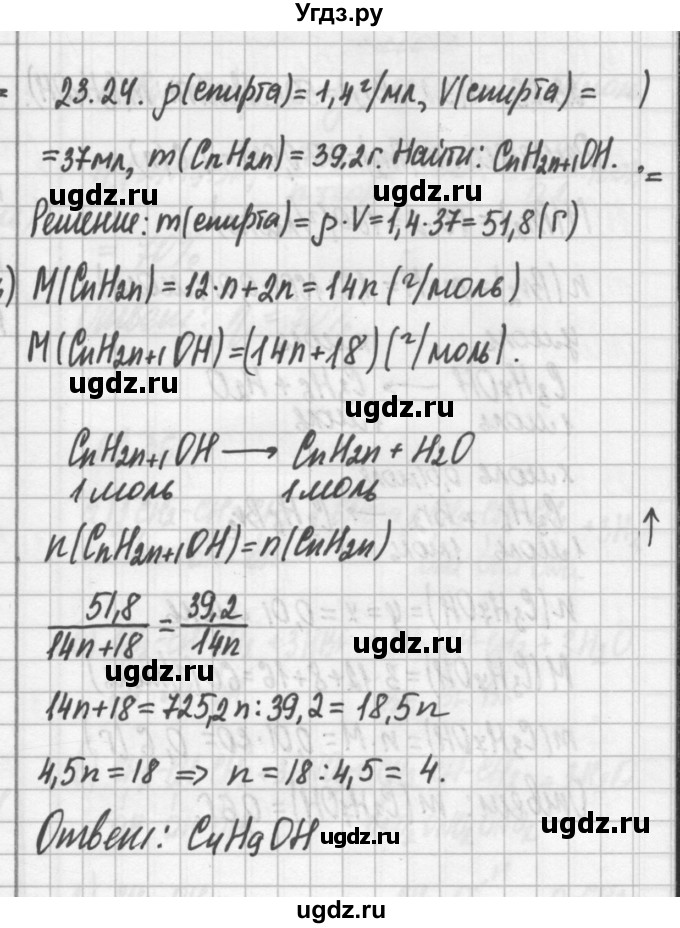 Угдз.ру
23.24. ρ(спирта) = 1,4 г/мл, V(спирта) = )
= 37 мл, m(CnH2n) = 39,2 г. Найти: CnH2n+1OH.
ugdz.ru ugdz.ru
Решение: m(спирта) = ρ·V = 1,4·37 = 51,8 (г)
) M(CnH2n) = 12·n + 2n = 14n (г/моль)
M(CnH2n+1OH) = (14n+18) (г/моль).
ugdz.ru
ugdz.ru
CnH2n+1OH → CnH2n + H2O
1 моль 1 моль
ugdz.ru
n(CnH2n+1OH) = n(CnH2n)
51,8/14n+18 = 39,2/14n
ugdz.ru
ugdz.ru
14n+18 = 725,2n : 39,2 = 18,5n
4,5n = 18 ⇒ n = 18 : 4,5 = 4.
Ответ: C4H9OH
ugdz.ru
ugdz.ru
ugdz.ru